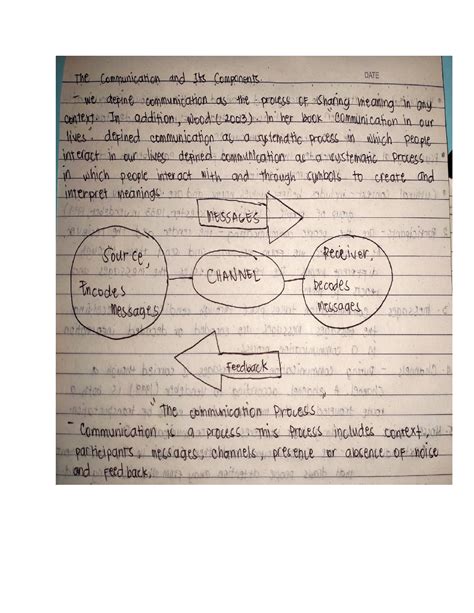 The Communication and Its Components
DATE
- we define communication as the process of sharing meaning in any
context. In addition, Wood (2003). In her book "Communication in our
lives" defined communication as a systematic process in which people
interact in our lives defined communication as a systematic process
in which people interact with and through symbols to create and
interpret meanings.
MESSAGES
Source,
Encodes
Messages
CHANNEL
Receiver,
Decodes
Messages
Feedback
"The communication Process"
- Communication is a process This Process includes context,
participants, messages, channels, presence or absence of noise
and feedback.